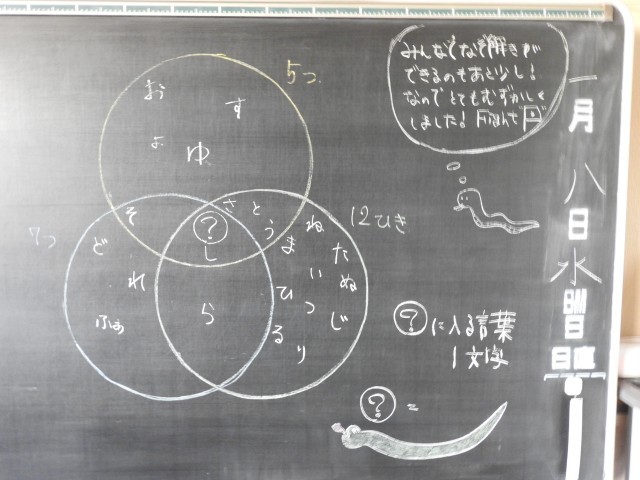 みんなでなぞ解きが
できるのもあと少し!
なのでとてもむずかしく
しました!
5つ
お
す
よ
ゆ
7つ
12ひき
そ
?
さ
と
し
ど
れ
ふぁ
ら
う
ま
ね
た
い
ぬ
ひ
つ
じ
る
り
?に入る言葉
1文字
?=
一月八日水曜
日直